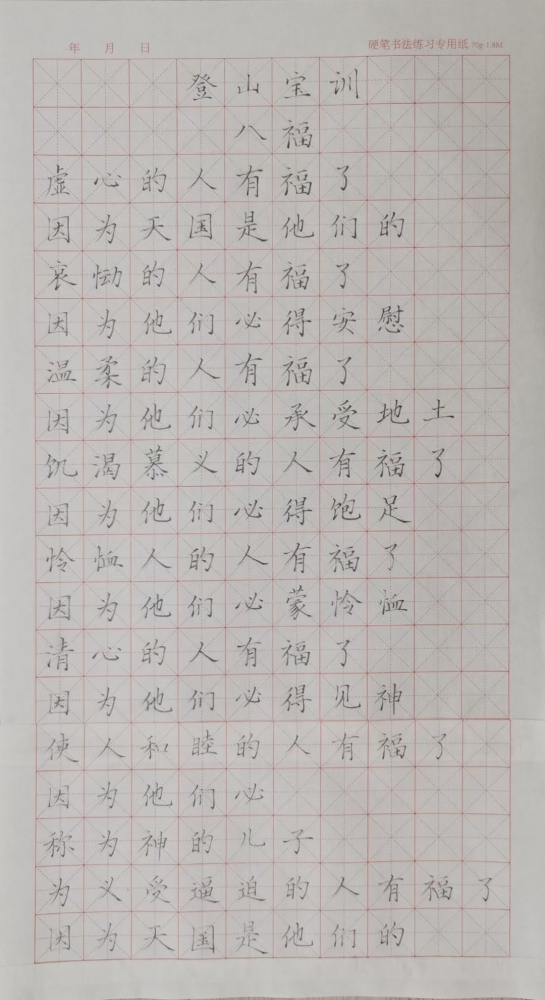 年 月 日 硬笔书法练习专用纸 70g-1.8M
登山宝训
八福
虚心的人有福了
因为天国是他们的
哀恸的人有福了
因为他们必得安慰
温柔的人有福了
因为他们必承受地土
饥渴慕义的人有福了
因为他们必得饱足
怜恤人的人有福了
因为他们必蒙怜恤
清心的人有福了
因为他们必得见神
使人和睦的人有福了
因为他们必
称为神的儿子
为义受逼迫的人有福了
因为天国是他们的